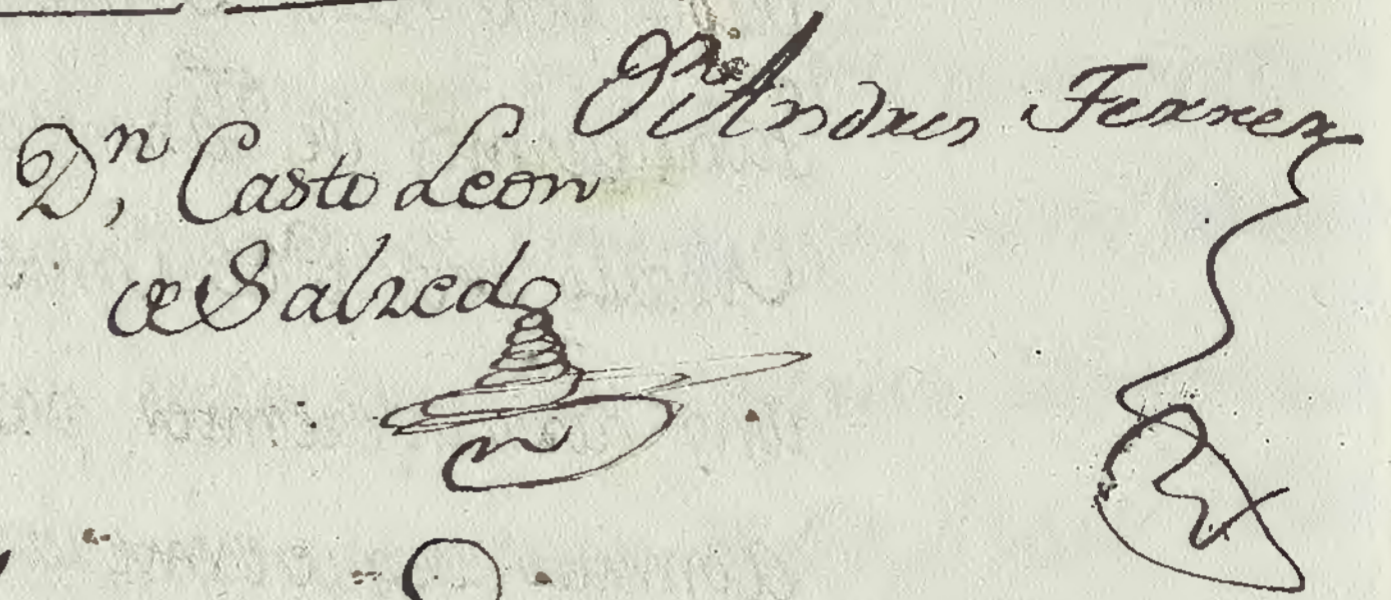 Dn, Casto Leon
de Salzedo
Andres Ferrer